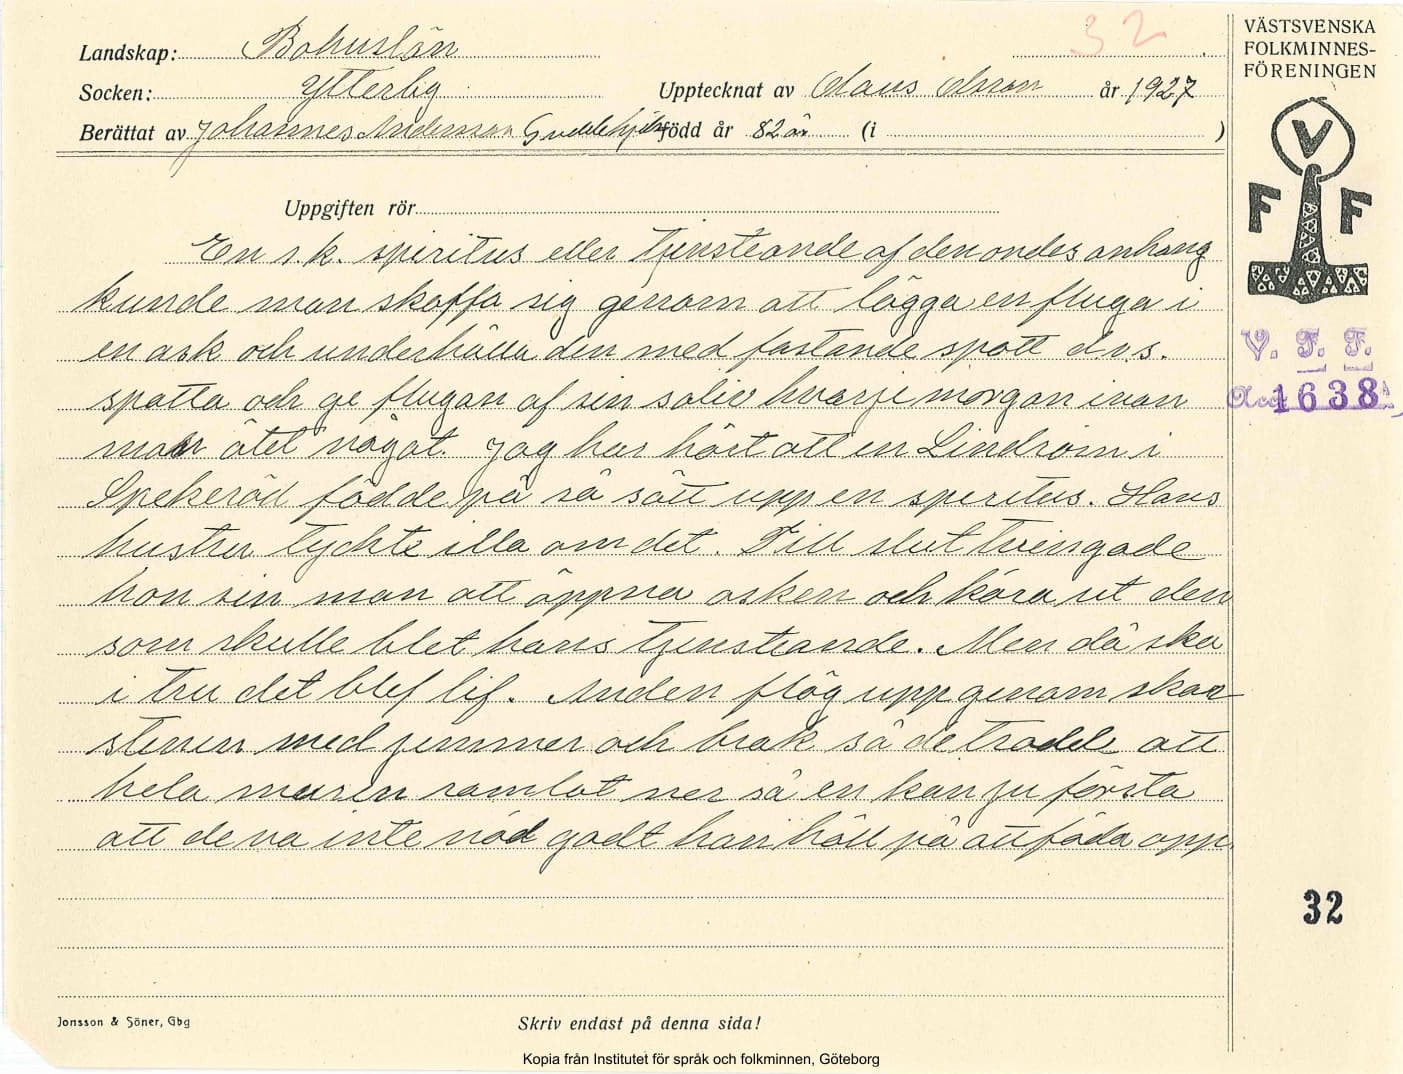 32
VÄSTSVENSKA
FOLKMINNES-
FÖRENINGEN
Landskap: Bohuslän
Socken: Ytterby
Upptecknat av Claus Olsson år 1927
Berättat av Johannes Andersson Guddehjälm född år 82 år (i )
V
F F
Uppgiften rör
En s.k. spiritus eller tjensteande af den ondes anhang
kunde man skaffa sig genom att lägga en fluga i
en ask och underhålla den med fastande spott d.v.s.
spotta och ge flugan af sin saliv hvarje morgon inan
man ätet något. Jag har hört att en Lindrom i
Spekeröd födde på så sätt upp en spiritus. Hans
hustru tyckte illa om det. Till slut tvingade
hon sin man att öppna asken och köra ut den
som skulle blet hans tjensteande. Men då ska
i tru det blef lif. Anden flög upp genom skor
stenen med jemmer och brak så de trodde att
hela muren ramlat ner så en kan ju första
att de va inte nåd godt han höll på att föda opp.
V. F. F.
Acc. 1638
32
Jonsson & Söner, Gbg
Skriv endast på denna sida!
Kopia från Institutet för språk och folkminnen, Göteborg